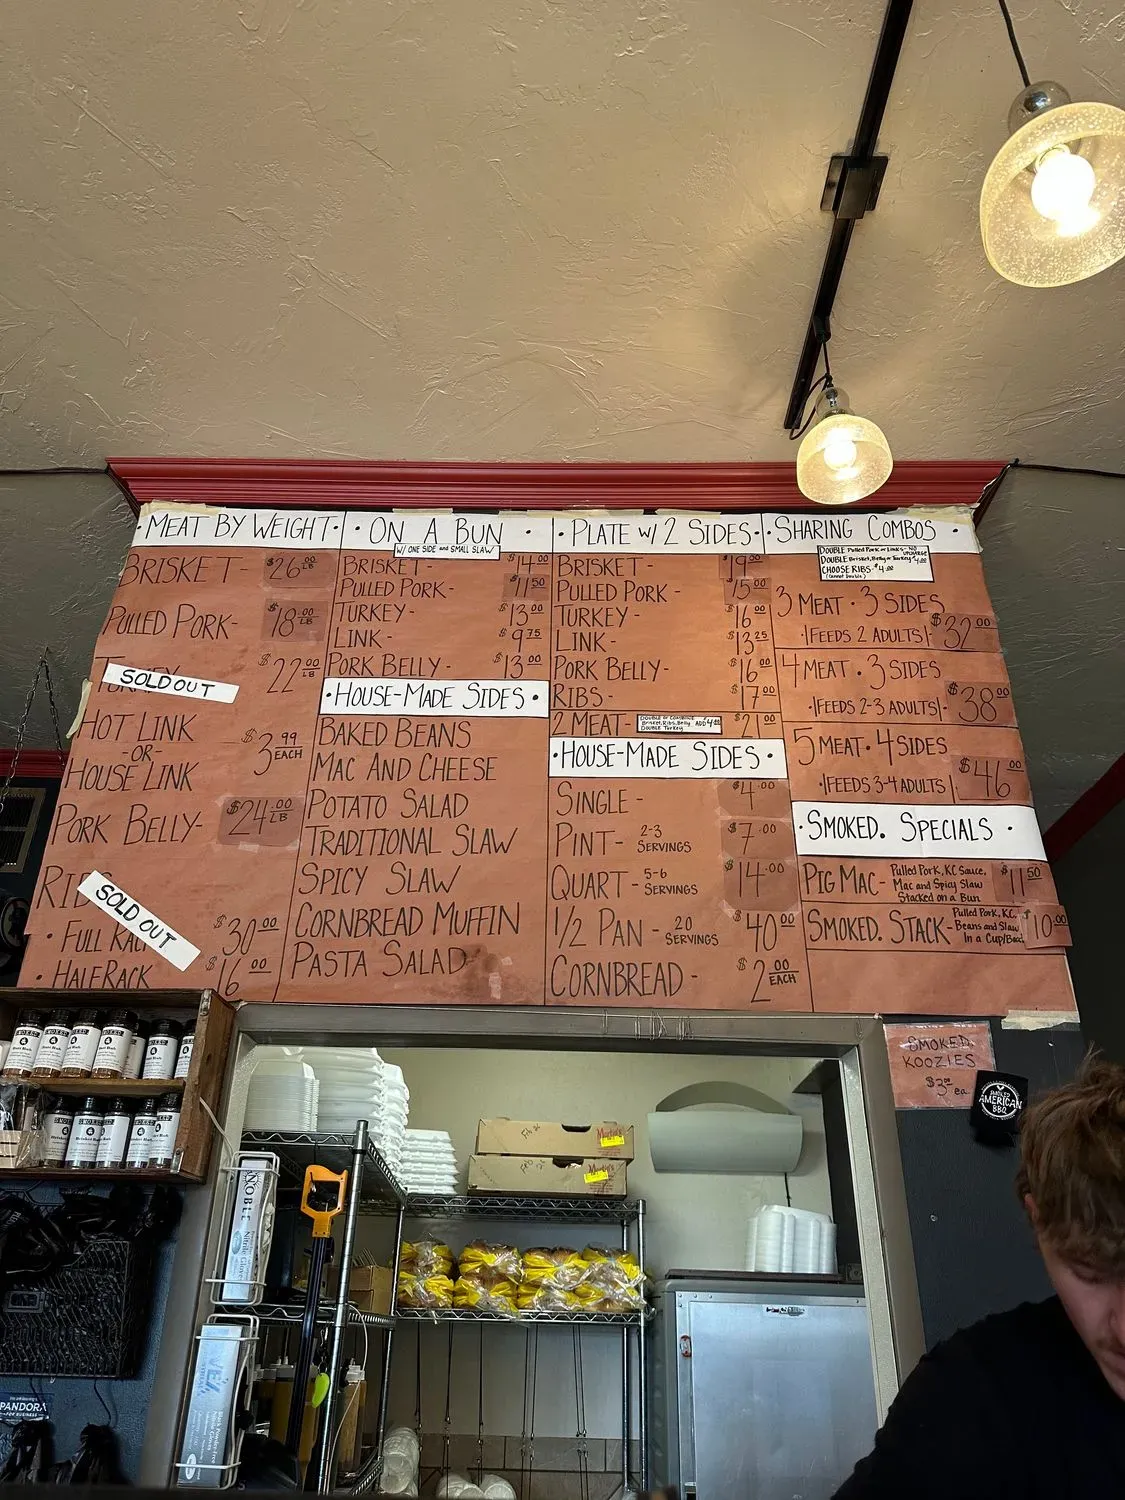 MEAT BY WEIGHT
BRISKET - $26.00 LB
PULLED PORK - $18.00 LB
SOLD OUT $22.00 LB
HOT LINK
-OR-
HOUSE LINK
$3.99 EACH
PORK BELLY - $24.00 LB
RIBS
SOLD OUT
• FULL RACK $30.00
• HALF RACK $16.00
• ON A BUN •
W/ ONE SIDE and SMALL SLAW
BRISKET - $14.00
PULLED PORK - $11.50
TURKEY - $13.00
LINK - $9.75
PORK BELLY - $13.00
• HOUSE-MADE SIDES •
BAKED BEANS
MAC AND CHEESE
POTATO SALAD
TRADITIONAL SLAW
SPICY SLAW
CORNBREAD MUFFIN
PASTA SALAD
• PLATE W/ 2 SIDES •
BRISKET - $19.00
PULLED PORK - $15.00
TURKEY - $16.00
LINK - $13.25
PORK BELLY - $16.00
RIBS - $17.00
2 MEAT - $21.00
DOUBLE or COMBINE
Brisket, Ribs, Belly ADD $4.00
DOUBLE Turkey
• HOUSE-MADE SIDES •
SINGLE - $4.00
PINT - 2-3 SERVINGS $7.00
QUART - 5-6 SERVINGS $14.00
1/2 PAN - 20 SERVINGS $40.00
CORNBREAD - $2.00 EACH
• SHARING COMBOS •
DOUBLE Pulled Pork or Links - NO UPCHARGE
DOUBLE Brisket, Belly or Turkey $4.00
CHOOSE RIBS $4.00
(Cannot Double)
3 MEAT • 3 SIDES
|FEEDS 2 ADULTS| $32.00
4 MEAT • 3 SIDES
|FEEDS 2-3 ADULTS| $38.00
5 MEAT • 4 SIDES
|FEEDS 3-4 ADULTS| $46.00
• SMOKED. SPECIALS •
PIG MAC - Pulled Pork, KC Sauce, $11.50
Mac and Spicy Slaw
Stacked on a Bun
SMOKED. STACK - Pulled Pork, KC, $10.00
Beans and Slaw
in a Cup/Bowl
SMOKED.
KOOZIES
$3.00 ea
AMERICAN
BBQ
NOBLE
Nitrile Gloves
PANDORA
FOR BUSINESS